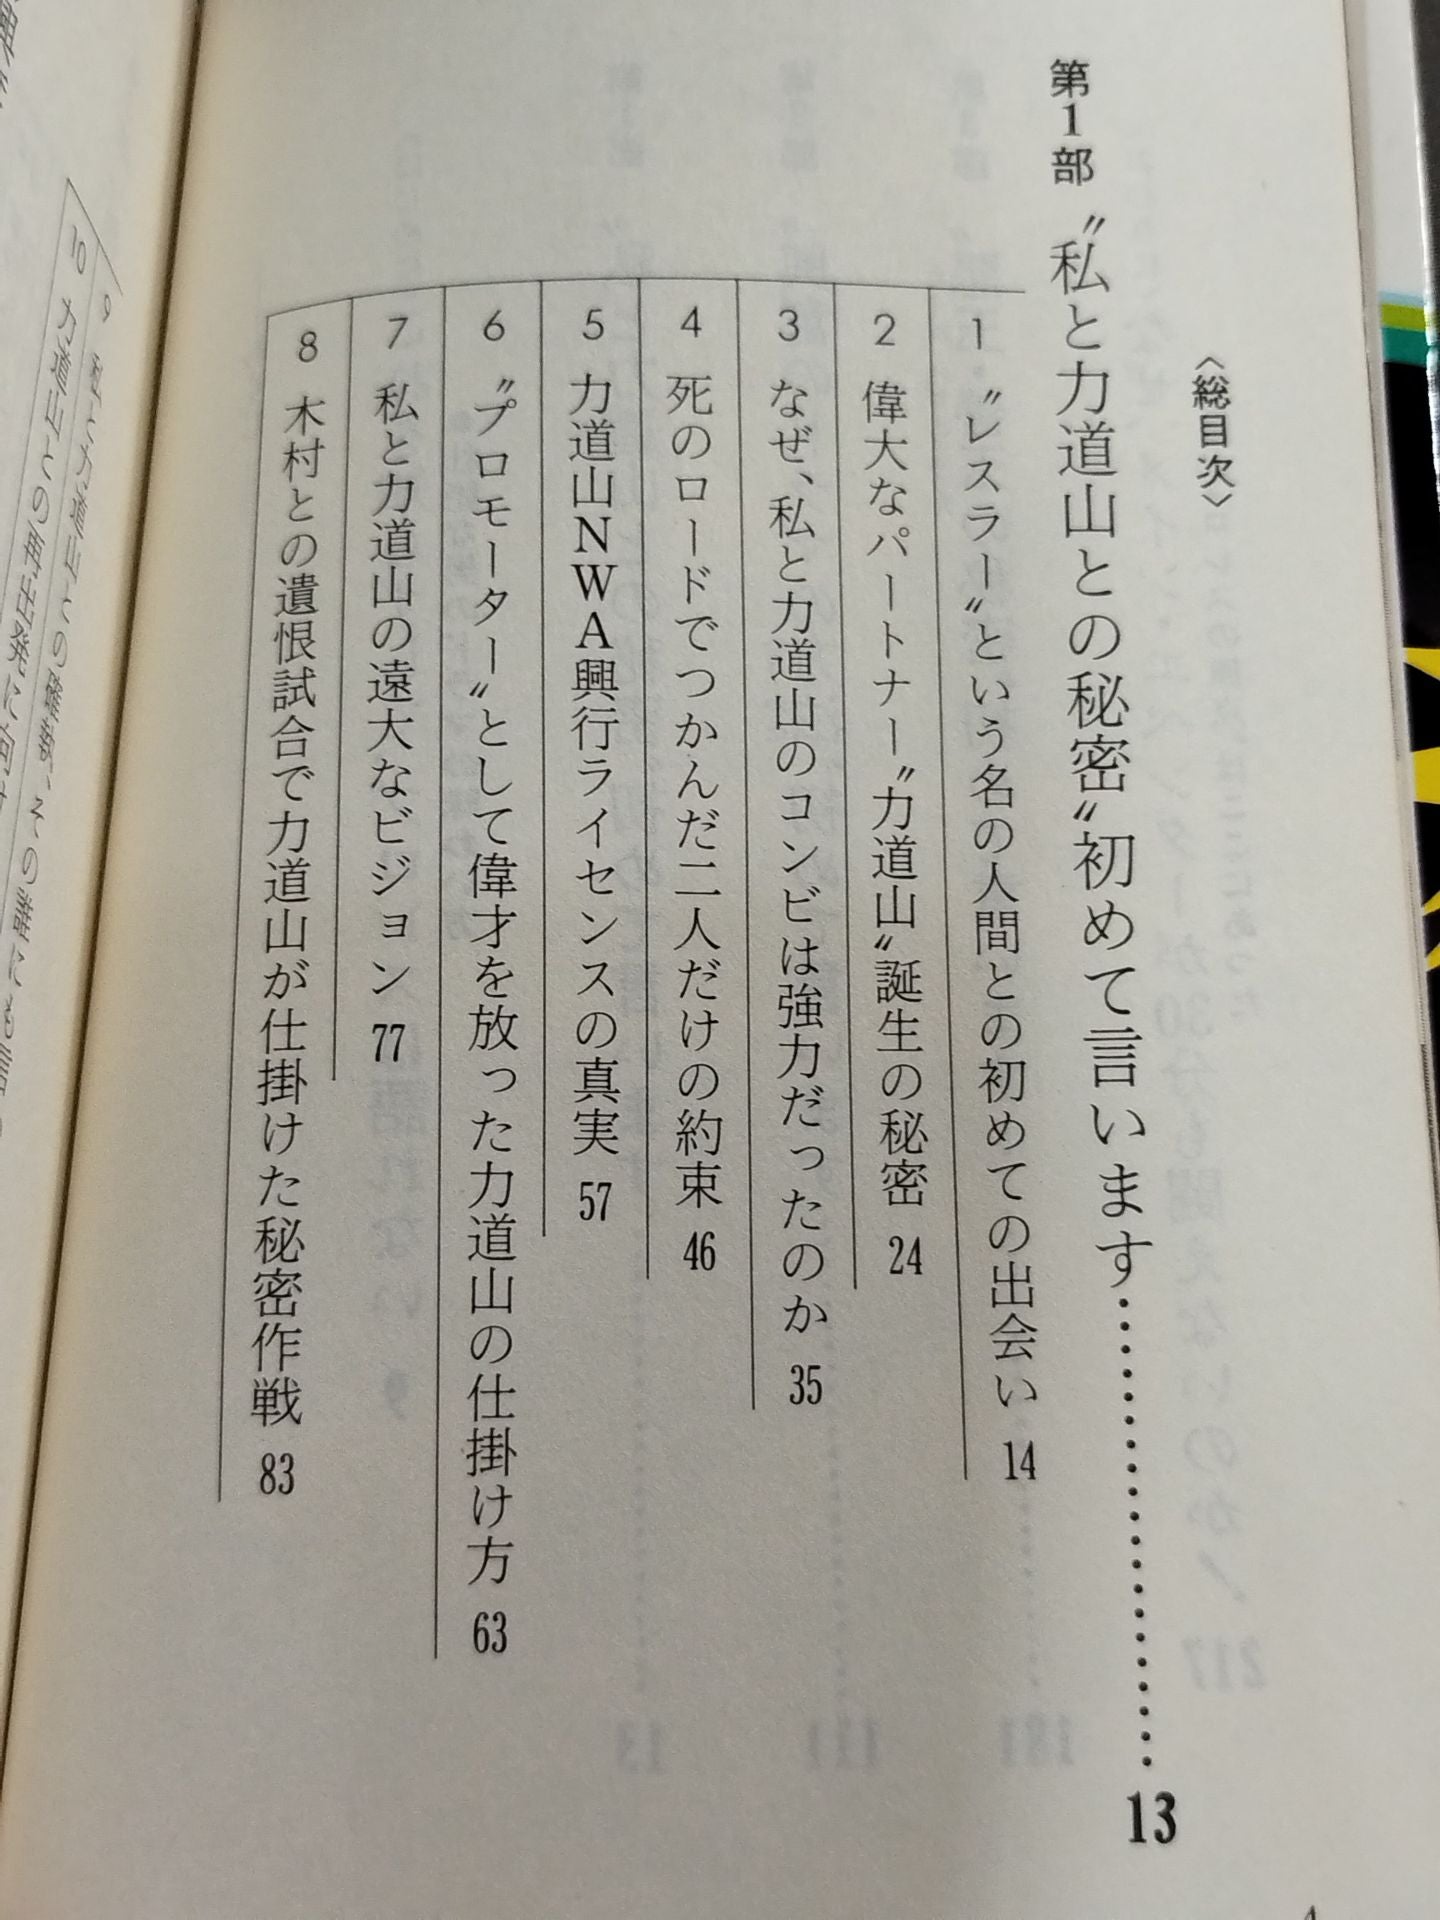 〈総目次〉
第1部 〝私と力道山との秘密〟初めて言います……………………13
1 〝レスラー〟という名の人間との初めての出会い 14
2 偉大なパートナー〝力道山〟誕生の秘密 24
3 なぜ、私と力道山のコンビは強力だったのか 35
4 死のロードでつかんだ二人だけの約束 46
5 力道山NWA興行ライセンスの真実 57
6 〝プロモーター〟として偉才を放った力道山の仕掛け方 63
7 私と力道山の遠大なビジョン 77
8 木村との遺恨試合で力道山が仕掛けた秘密作戦 83
9 私と力道山との確執、その誰にも
10 力道山との再出発に向け